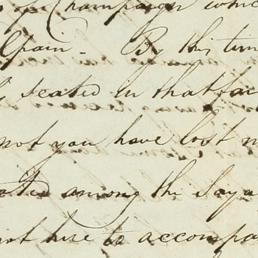 Champaign which
Spain - By this time
seated in that
not you have lost
among the Loya
not here to accompa